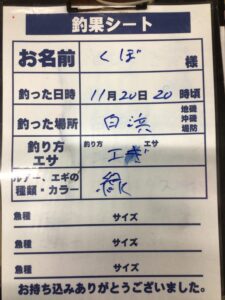 釣果シート
お名前 くぼ 様
釣った日時 11月20日20時頃
釣った場所 白浜 地磯 沖磯 堤防
釣り方 エサ 釣り方 エギ エサ
ルアー、エギの種類・カラー 緑
魚種 サイズ
魚種 サイズ
魚種 サイズ
お持ち込みありがとうございました。